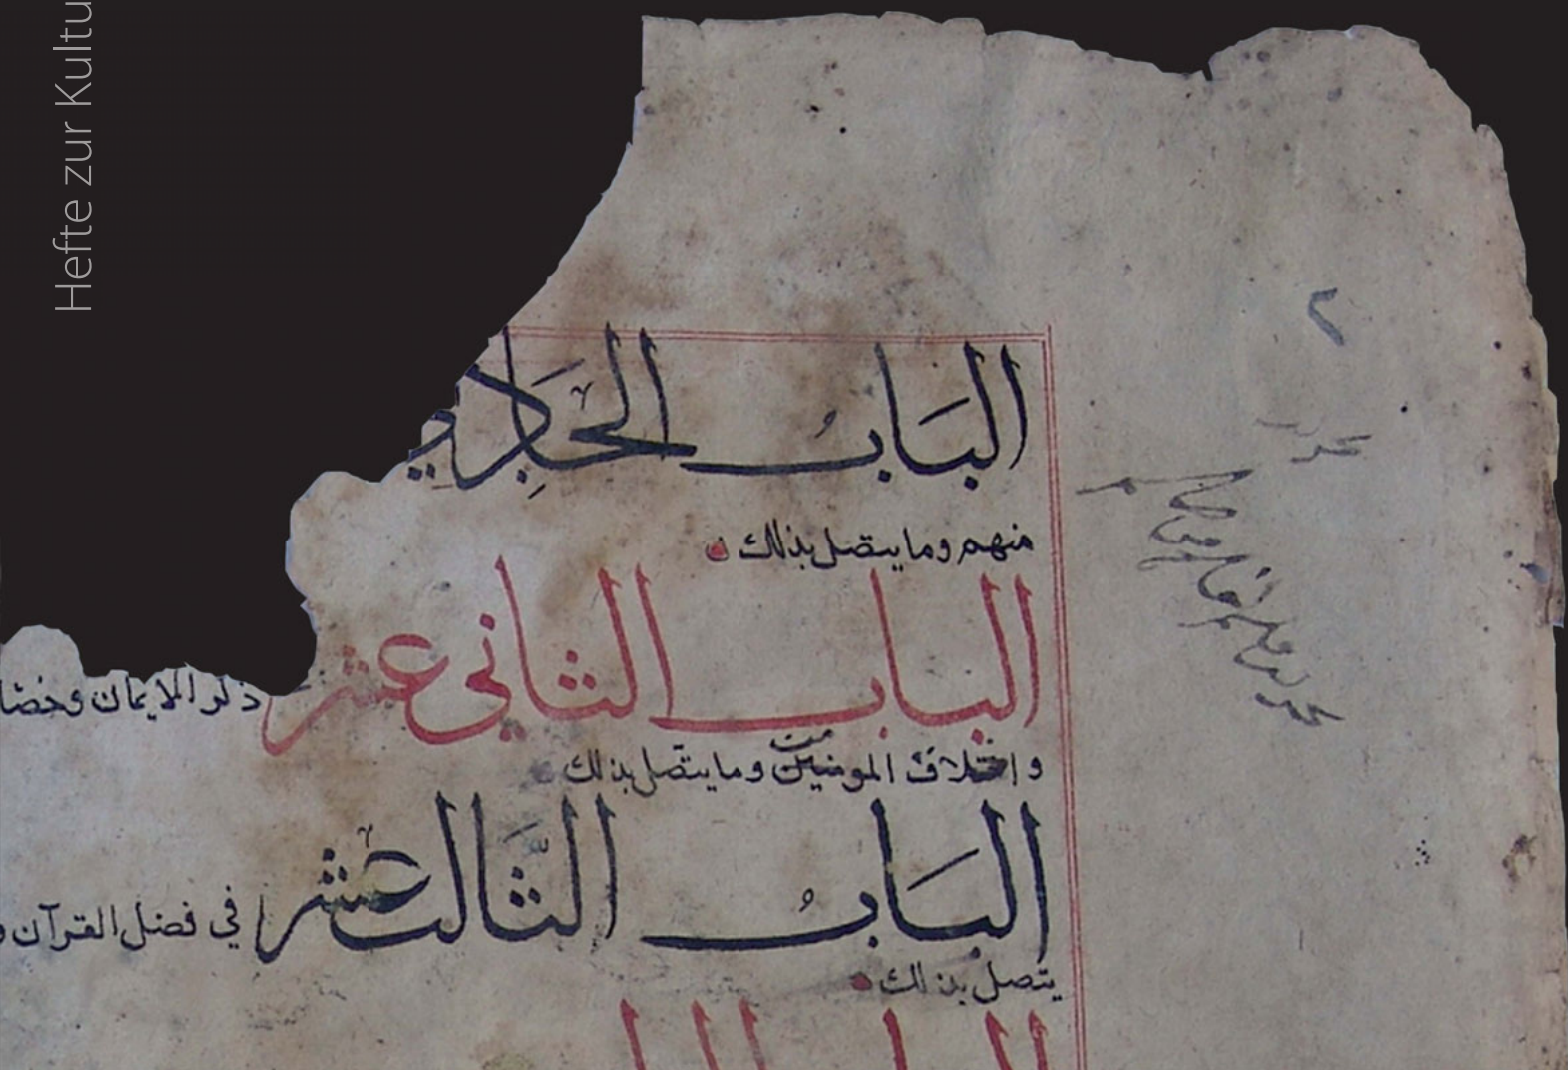 Hefte zur Kultu
٢
البَابُ الحَادِي
منهم وما يتصل بذلك
الباب الثاني عشر ذكر الايمان وخصا
واخلاق المومنين وما يتصل بذلك
البَابُ الثَّالث عشر في فضل القرآن و
يتصل بذلك